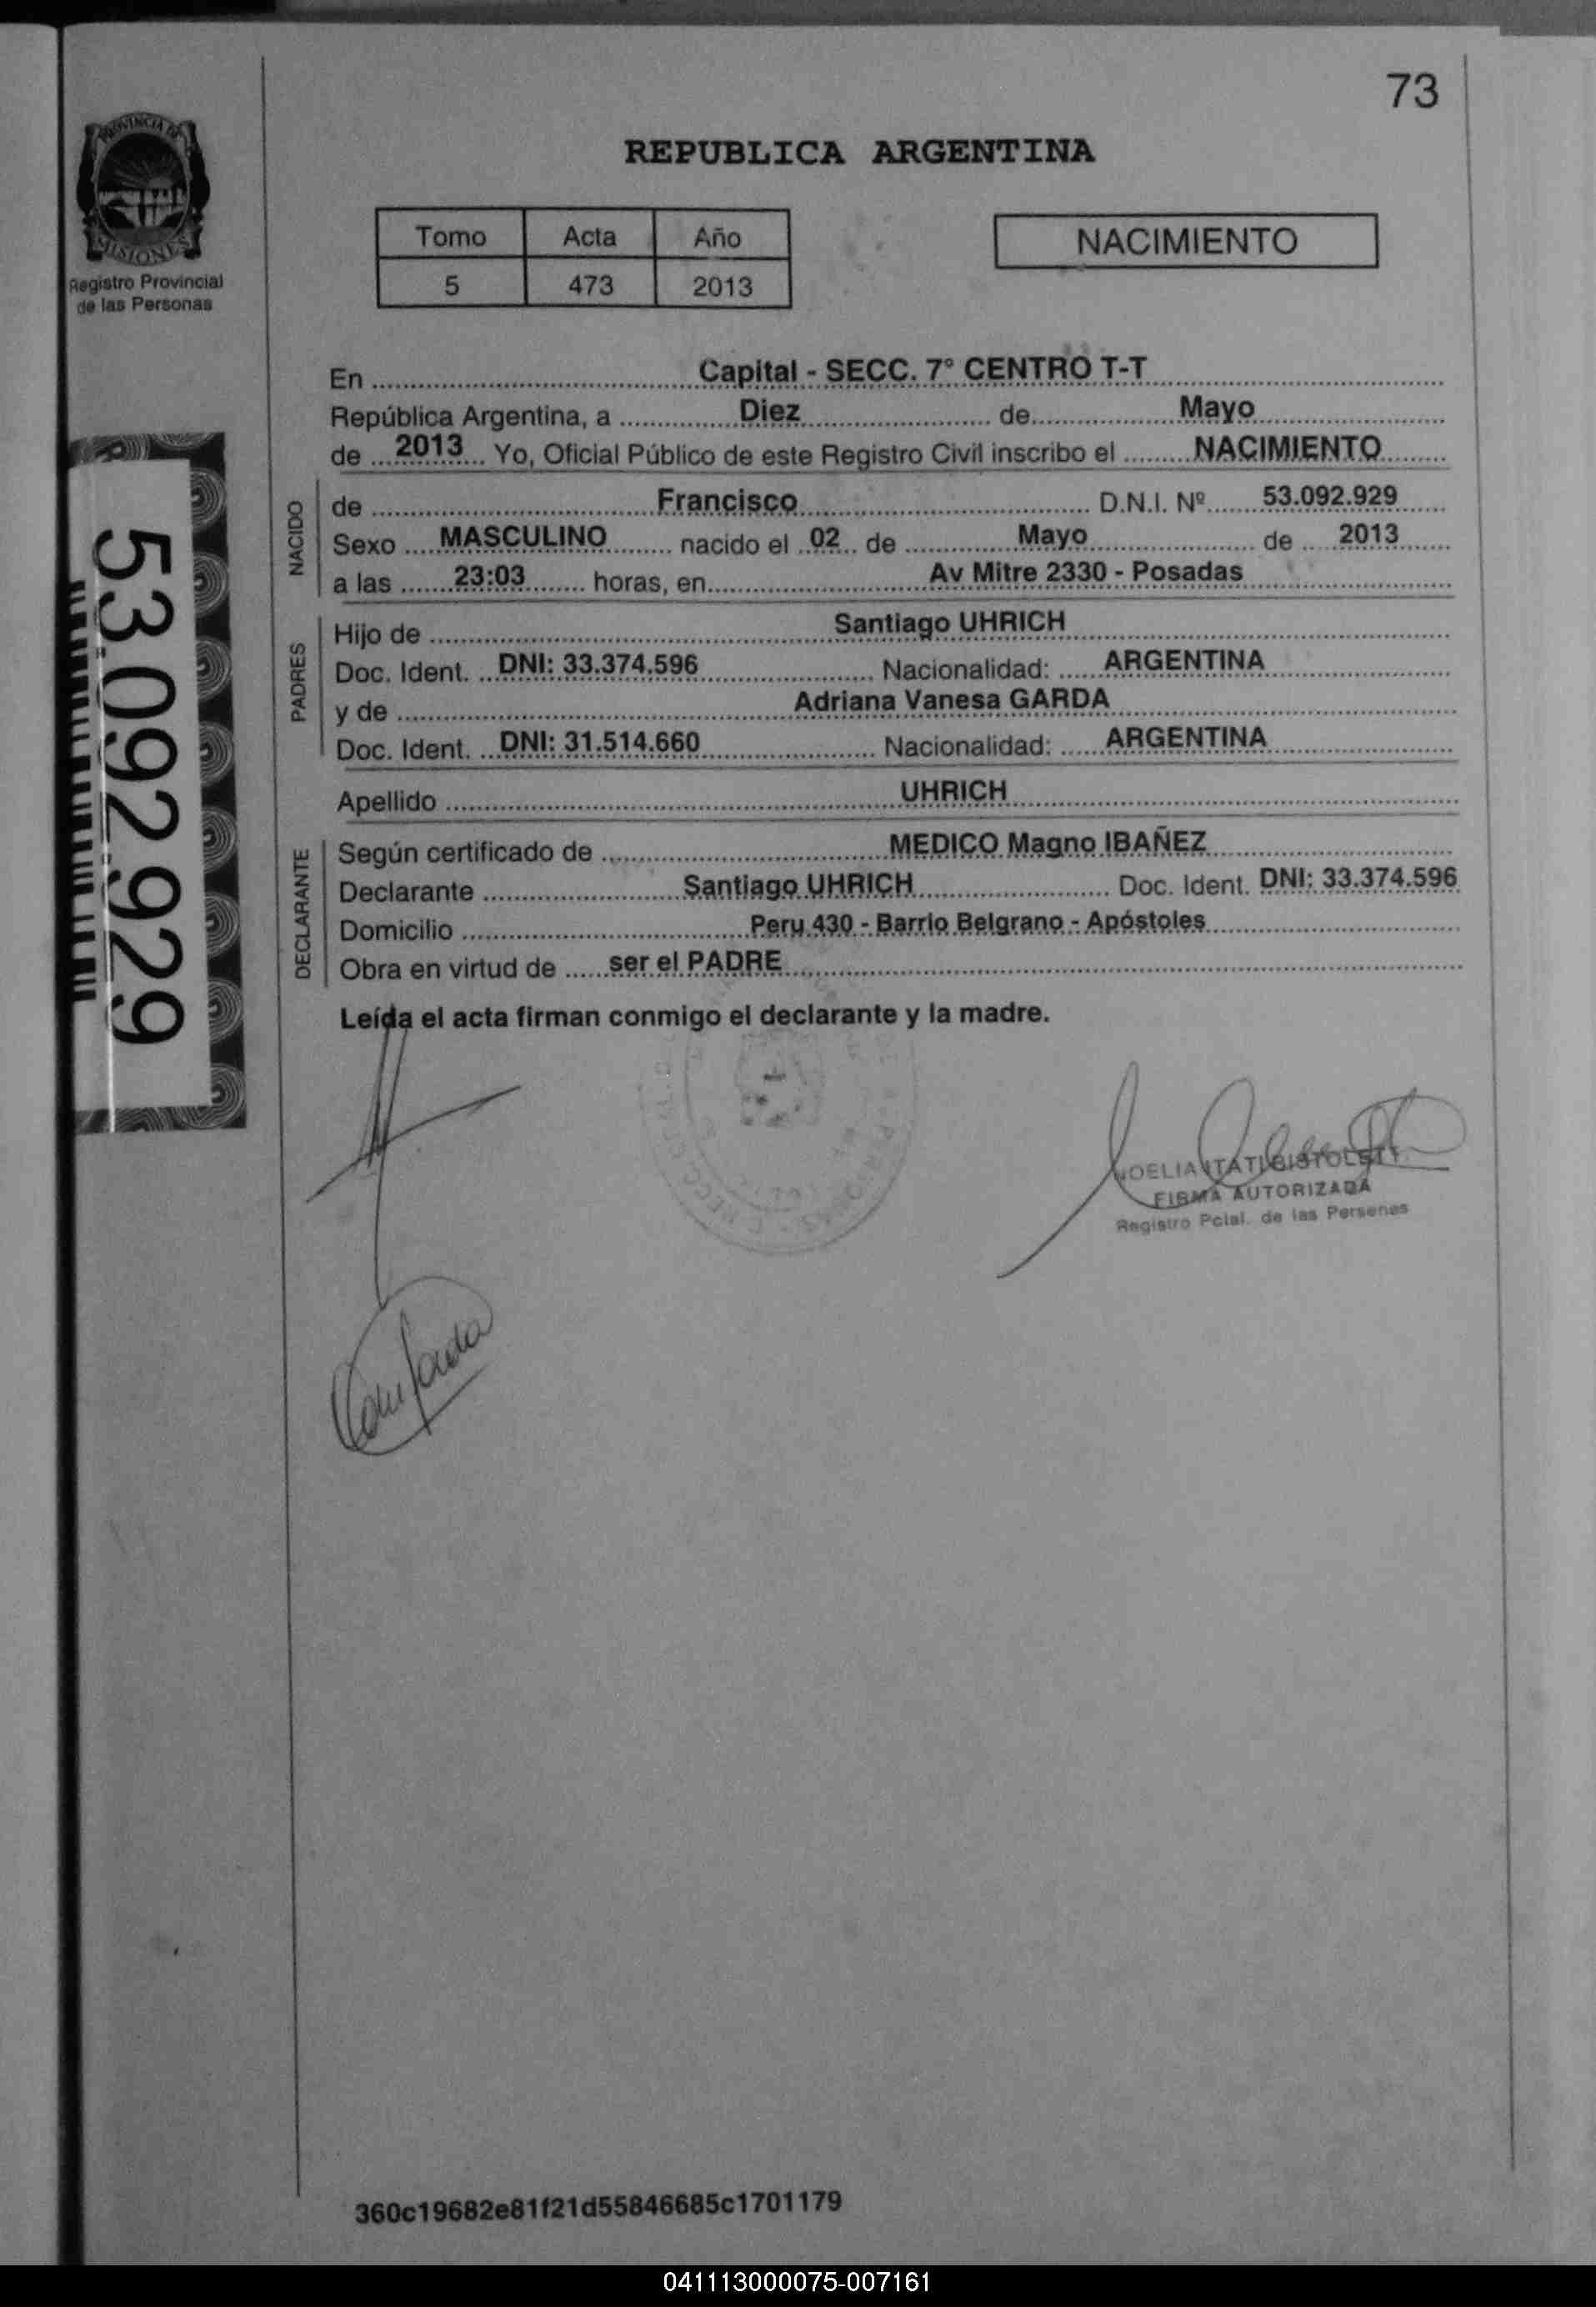 73
PROVINCIA DE
MISIONES
Registro Provincial
de las Personas
REPUBLICA ARGENTINA
Tomo Acta Año
5 473 2013
NACIMIENTO
En Capital - SECC. 7° CENTRO T-T
República Argentina, a Diez de Mayo
de 2013 Yo, Oficial Público de este Registro Civil inscribo el NACIMIENTO
NACIDO
de Francisco D.N.I. Nº 53.092.929
Sexo MASCULINO nacido el 02 de Mayo de 2013
a las 23:03 horas, en Av Mitre 2330 - Posadas
PADRES
Hijo de Santiago UHRICH
Doc. Ident. DNI: 33.374.596 Nacionalidad: ARGENTINA
y de Adriana Vanesa GARDA
Doc. Ident. DNI: 31.514.660 Nacionalidad: ARGENTINA
Apellido UHRICH
DECLARANTE
Según certificado de MEDICO Magno IBAÑEZ
Declarante Santiago UHRICH Doc. Ident. DNI: 33.374.596
Domicilio Peru 430 - Barrio Belgrano - Apóstoles
Obra en virtud de ser el PADRE
Leída el acta firman conmigo el declarante y la madre.
53.092.929
NOELIA ITATI
FIRMA AUTORIZADA
Registro Pcial. de las Personas
360c19682e81f21d55846685c1701179
041113000075-007161